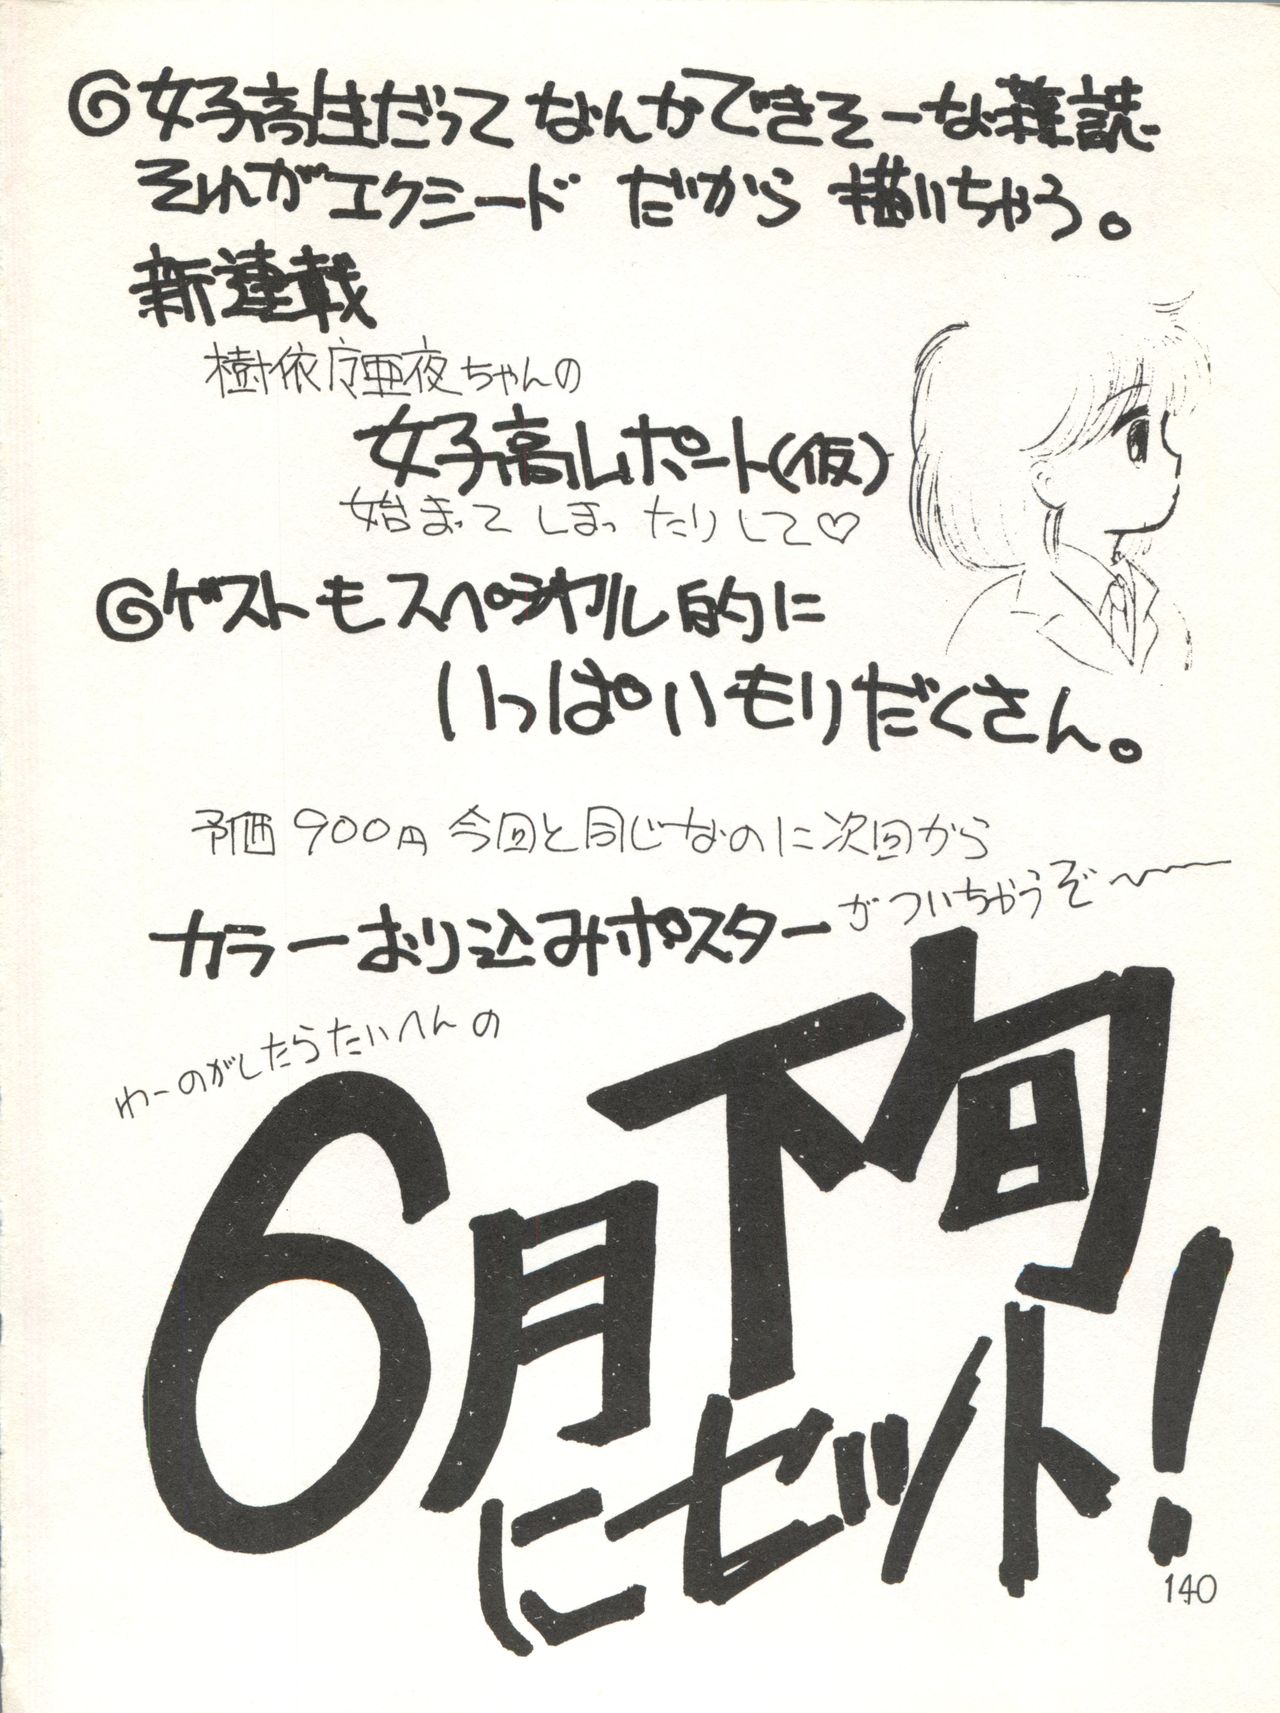 女子高生だってなんかできそーな雑誌
それがエクシード だから 描いちゃう。
新連載
樹依 亜夜ちゃんの
女子高レポート(仮)
始まってしまったりして♡
ゲストもスペシャル的に
いっぱいもりだくさん。
予価900円 今回と同じなのに次回から
カラーおり込みポスターがついちゃうぞ〜
わーのがしたらたいへんの
6月下旬
にセット!
140